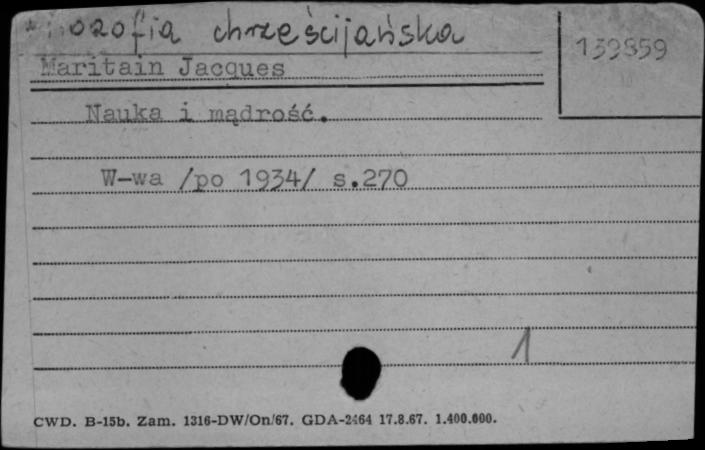 filozofia chrześcijańska
139859
Maritain Jacques
Nauka i mądrość.
W-wa /po 1934/ s.270
1
CWD. B-15b. Zam. 1316-DW/On/67. GDA-2464 17.8.67. 1.400.000.